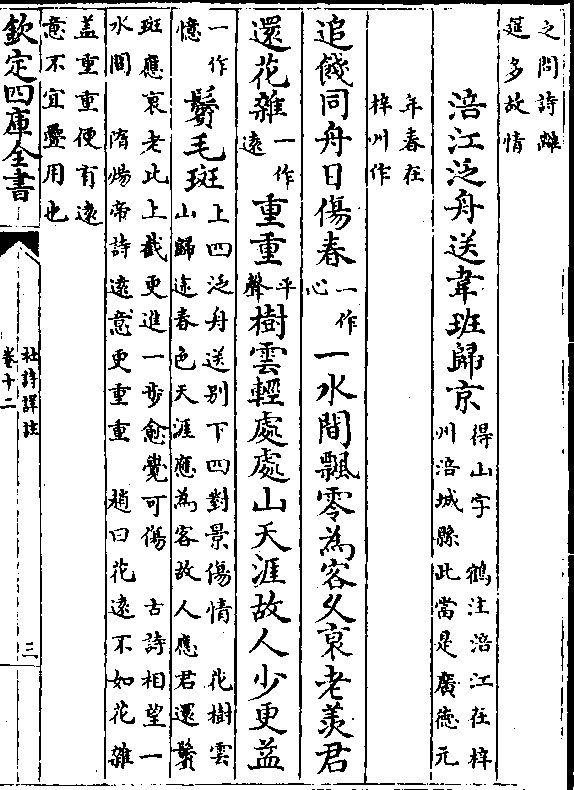 之問詩離
筵多故情
涪江泛舟送韋班歸京得山字 鶴注涪江在梓
州涪城縣此當是廣徳元
年春在
梓州作
追餞同舟日傷春一作心一水間飄零為客久衰老羡君
還花雜一作遠重重平聲樹雲輕處處山天涯故人少更益
一作憶鬂毛斑上四泛舟送别下四對景傷情 花樹雲
山歸途春色天涯應為客故人應君還鬂
斑應衰老此上截更進一步愈覺可傷 古詩相望一
水間 隋煬帝詩遠意更重重 趙曰花遠不如花雜
盖重重便有遠
意不宜疊用也
欽定四庫全書
杜詩詳註
卷十二
三